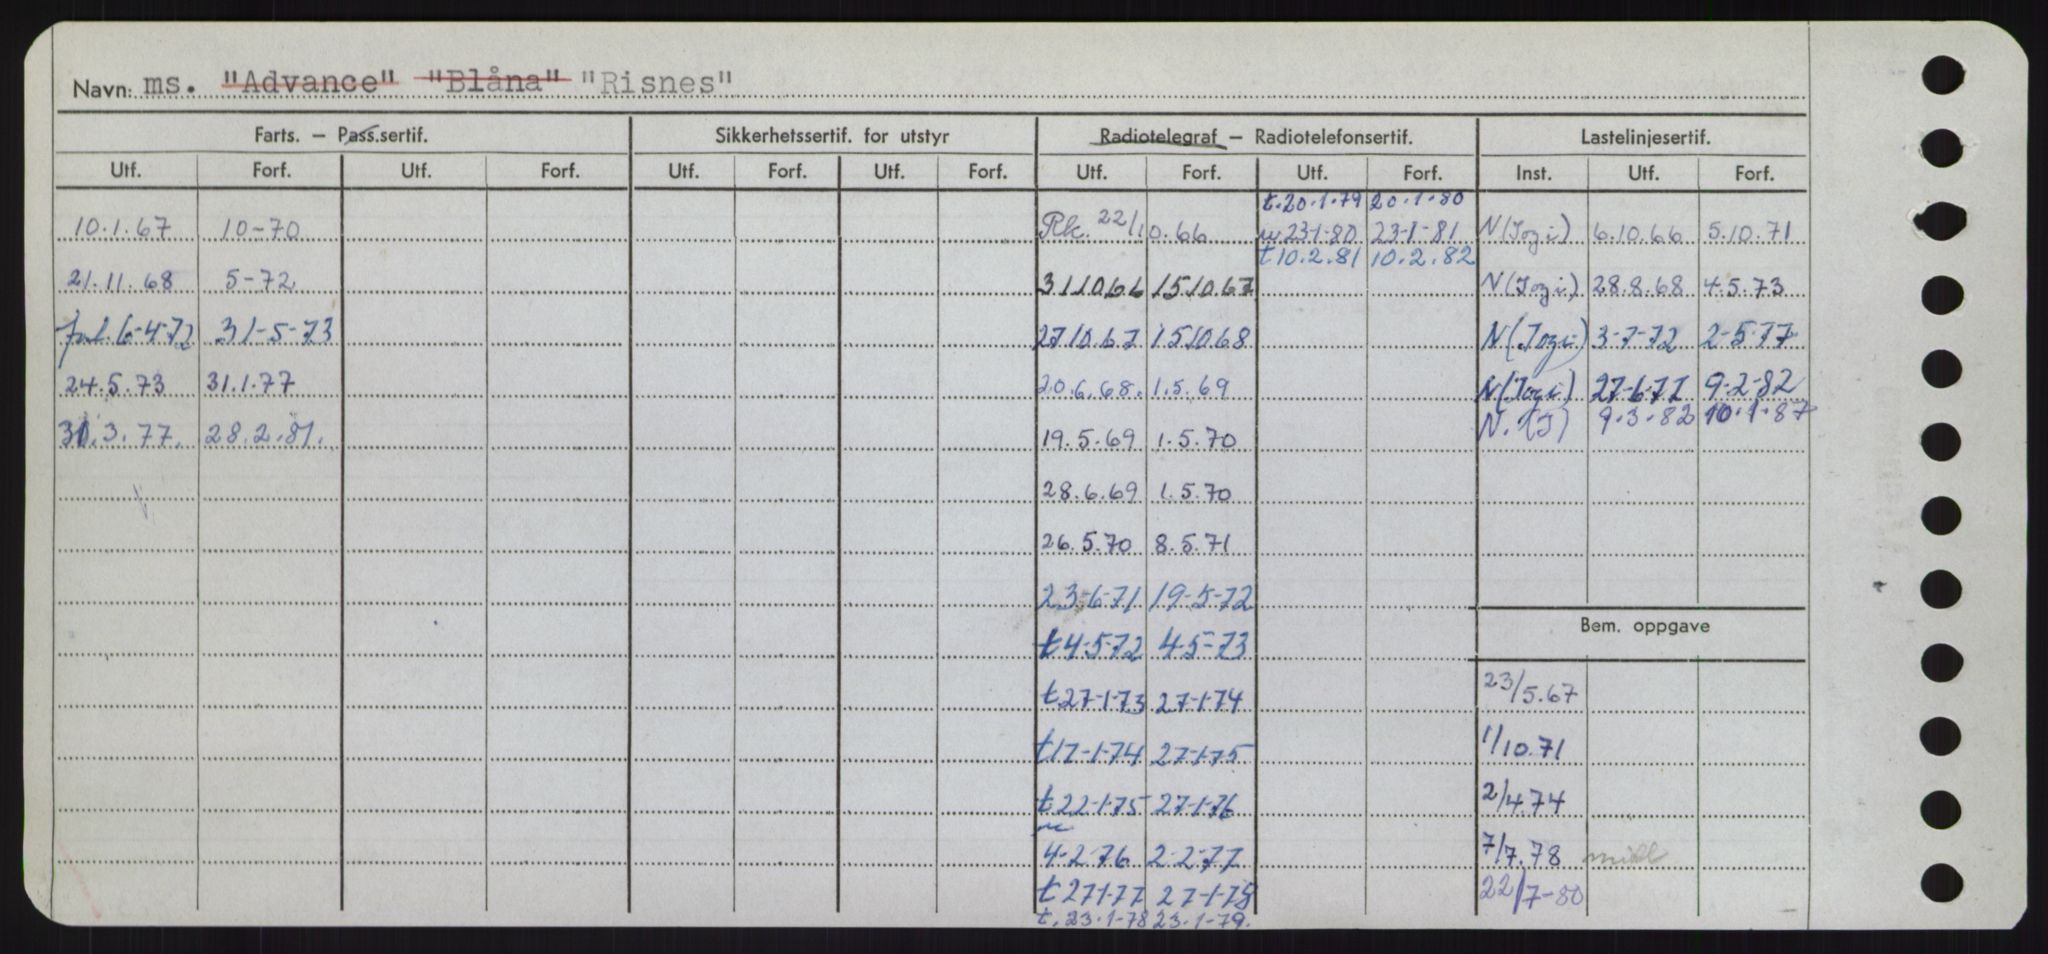 Navn: ms. "Advance" "Blåna" "Risnes"
Farts. – Pass.sertif. Sikkerhetssertif. for utstyr Radiotelegraf – Radiotelefonsertif. Lastelinjesertif.
Utf. Forf. Utf. Forf. Utf. Forf. Utf. Forf. Utf. Forf. Utf. Forf. Inst. Utf. Forf.
t.20.1.79 20.1.80
10.1.67 10-70 Rk. 22/10.66 23-1-80 23-1-81 N(Iogi) 6.10.66 5.10.71
t10.2.81 10.2.82
21.11.68 5-72 311066 151067 N(Iogi) 28.8.68 4.5.73
6-4-72 31-5-73 2710.67 151068 N(Iogi) 3-7-72 2-5-77
24.5.73 31.1.77 20.6.68. 1.5.69 N(Iogi) 27-6-77 9-2-82
31.3.77. 28.2.81. 19.5.69 1.5.70 N.(I) 9.3.82 10.1-87
28.6.69 1.5.70
26.5.70 8.5.71
23-6-71 19-5-72
Bem. oppgave
t4-5-72 4-5-73
t27-1-73 27-1-74 23/5.67
t17-1-74 27-1-75 1/10.71
t22-1-75 27-1-76 2/4.74
4-2-76 2-2-77 7/7.78
t27-1-77 27-1-78 22/7-80
t.23.1-78 23.1-79.